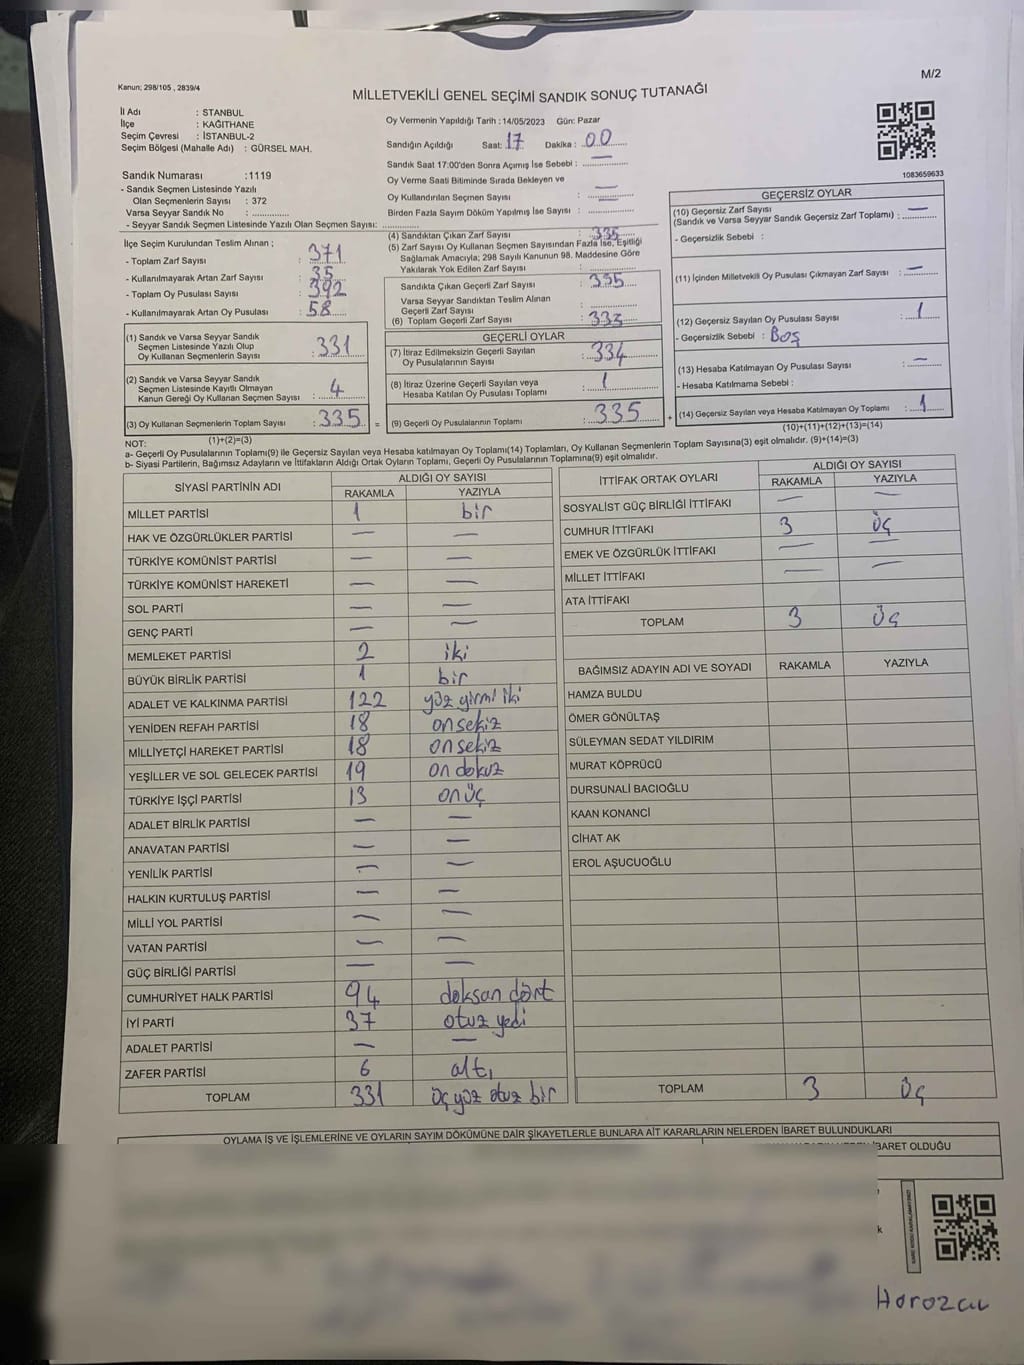 M/2
Kanun; 298/105 , 2839/4
MİLLETVEKİLİ GENEL SEÇİMİ SANDIK SONUÇ TUTANAĞI
İl Adı : STANBUL
İlçe : KAĞITHANE
Seçim Çevresi : İSTANBUL-2
Seçim Bölgesi (Mahalle Adı) : GÜRSEL MAH.
Sandık Numarası :1119
- Sandık Seçmen Listesinde Yazılı
Olan Seçmenlerin Sayısı : 372
Varsa Seyyar Sandık No :
- Seyyar Sandık Seçmen Listesinde Yazılı Olan Seçmen Sayısı:
İlçe Seçim Kurulundan Teslim Alınan ;
- Toplam Zarf Sayısı : 371
- Kullanılmayarak Artan Zarf Sayısı : 35
- Toplam Oy Pusulası Sayısı : 392
- Kullanılmayarak Artan Oy Pusulası : 58
(1) Sandık ve Varsa Seyyar Sandık
Seçmen Listesinde Yazılı Olup
Oy Kullanan Seçmenlerin Sayısı : 331
(2) Sandık ve Varsa Seyyar Sandık
Seçmen Listesinde Kayıtlı Olmayan
Kanun Gereği Oy Kullanan Seçmen Sayısı : 4
(3) Oy Kullanan Seçmenlerin Toplam Sayısı : 335
(1)+(2)=(3)
Oy Vermenin Yapıldığı Tarih : 14/05/2023 Gün: Pazar
Sandığın Açıldığı Saat: 17 Dakika : 00
Sandık Saat 17:00'den Sonra Açımış İse Sebebi : —
Oy Verme Saati Bitiminde Sırada Bekleyen ve
Oy Kullandırılan Seçmen Sayısı : —
Birden Fazla Sayım Döküm Yapılmış İse Sayısı :
(4) Sandıktan Çıkan Zarf Sayısı : 335
(5) Zarf Sayısı Oy Kullanan Seçmen Sayısından Fazla İse, Eşitliği
Sağlamak Amacıyla; 298 Sayılı Kanunun 98. Maddesine Göre
Yakılarak Yok Edilen Zarf Sayısı :
Sandıkta Çıkan Geçerli Zarf Sayısı : 335
Varsa Seyyar Sandıktan Teslim Alınan
Geçerli Zarf Sayısı :
(6) Toplam Geçerli Zarf Sayısı : 335
GEÇERLİ OYLAR
(7) İtiraz Edilmeksizin Geçerli Sayılan
Oy Pusulalarının Sayısı : 334
(8) İtiraz Üzerine Geçerli Sayılan veya
Hesaba Katılan Oy Pusulaları Toplamı : 1
(9) Geçerli Oy Pusulalarının Toplamı : 335
1083659633
GEÇERSİZ OYLAR
(10) Geçersiz Zarf Sayısı
(Sandık ve Varsa Seyyar Sandık Geçersiz Zarf Toplamı) : —
- Geçersizlik Sebebi :
(11) İçinden Milletvekili Oy Pusulası Çıkmayan Zarf Sayısı : —
(12) Geçersiz Sayılan Oy Pusulası Sayısı : 1
- Geçersizlik Sebebi : Boş
(13) Hesaba Katılmayan Oy Pusulası Sayısı : —
- Hesaba Katılmama Sebebi :
(14) Geçersiz Sayılan veya Hesaba Katılmayan Oy Toplamı : 1
(10)+(11)+(12)+(13)=(14)
NOT:
a- Geçerli Oy Pusulalarının Toplamı(9) ile Geçersiz Sayılan veya Hesaba katılmayan Oy Toplamı(14) Toplamları, Oy Kullanan Seçmenlerin Toplam Sayısına(3) eşit olmalıdır. (9)+(14)=(3)
b- Siyasi Partilerin, Bağımsız Adayların ve İttifakların Aldığı Ortak Oyların Toplamı, Geçerli Oy Pusulalarının Toplamına(9) eşit olmalıdır.
SİYASİ PARTİNİN ADI ALDIĞI OY SAYISI
RAKAMLA YAZIYLA
MİLLET PARTİSİ 1 bir
HAK VE ÖZGÜRLÜKLER PARTİSİ — —
TÜRKİYE KOMÜNİST PARTİSİ — —
TÜRKİYE KOMÜNİST HAREKETİ — —
SOL PARTİ — —
GENÇ PARTİ — —
MEMLEKET PARTİSİ 2 iki
BÜYÜK BİRLİK PARTİSİ 1 bir
ADALET VE KALKINMA PARTİSİ 122 yüz yirmi iki
YENİDEN REFAH PARTİSİ 18 on sekiz
MİLLİYETÇİ HAREKET PARTİSİ 18 on sekiz
YEŞİLLER VE SOL GELECEK PARTİSİ 19 on dokuz
TÜRKİYE İŞÇİ PARTİSİ 13 on üç
ADALET BİRLİK PARTİSİ — —
ANAVATAN PARTİSİ — —
YENİLİK PARTİSİ — —
HALKIN KURTULUŞ PARTİSİ — —
MİLLİ YOL PARTİSİ — —
VATAN PARTİSİ — —
GÜÇ BİRLİĞİ PARTİSİ — —
CUMHURİYET HALK PARTİSİ 94 doksan dört
İYİ PARTİ 37 otuz yedi
ADALET PARTİSİ — —
ZAFER PARTİSİ 6 altı
TOPLAM 331 üç yüz otuz bir
İTTİFAK ORTAK OYLARI ALDIĞI OY SAYISI
RAKAMLA YAZIYLA
SOSYALİST GÜÇ BİRLİĞİ İTTİFAKI — —
CUMHUR İTTİFAKI 3 üç
EMEK VE ÖZGÜRLÜK İTTİFAKI — —
MİLLET İTTİFAKI — —
ATA İTTİFAKI
TOPLAM 3 üç
BAĞIMSIZ ADAYIN ADI VE SOYADI RAKAMLA YAZIYLA
HAMZA BULDU
ÖMER GÖNÜLTAŞ
SÜLEYMAN SEDAT YILDIRIM
MURAT KÖPRÜCÜ
DURSUNALİ BACIOĞLU
KAAN KONANCİ
CİHAT AK
EROL AŞUCUOĞLU
TOPLAM 3 üç
OYLAMA İŞ VE İŞLEMLERİNE VE OYLARIN SAYIM DÖKÜMÜNE DAİR ŞİKAYETLERLE BUNLARA AİT KARARLARIN NELERDEN İBARET BULUNDUKLARI
İBARET OLDUĞU
k